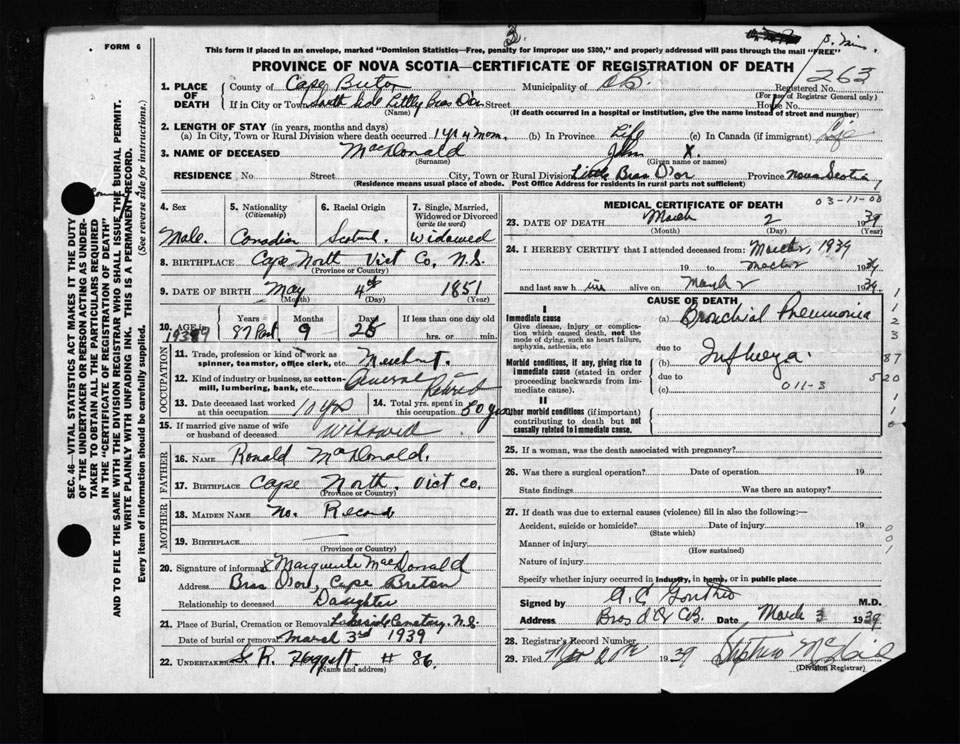 3
FORM 6
This form if placed in an envelope, marked "Dominion Statistics—Free, penalty for improper use $300," and properly addressed will pass through the mail "FREE"
PROVINCE OF NOVA SCOTIA—CERTIFICATE OF REGISTRATION OF DEATH
263
1. PLACE OF DEATH
County of Cape Breton
Municipality of C.B.
Registered No.
(For use of Registrar General only)
If in City or Town South Side Little Bras D'or Street
House No.
(Name)
(If death occurred in a hospital or institution, give the name instead of street and number)
2. LENGTH OF STAY (in years, months and days)
(a) In City, Town or Rural Division where death occurred 1 yr 4 mon. (b) In Province Life (c) In Canada (if immigrant) Life
3. NAME OF DECEASED MacDonald John X.
(Surname) (Given name or names)
RESIDENCE No. Street City, Town or Rural Division Little Bras D'or Province Nova Scotia
(Residence means usual place of abode. Post Office Address for residents in rural parts not sufficient)
4. Sex
Male.
5. Nationality (Citizenship)
Canadian
6. Racial Origin
Scotch
7. Single, Married, Widowed or Divorced (write the word)
Widowed
8. BIRTHPLACE Cape North Vict Co, N.S.
(Province or Country)
9. DATE OF BIRTH May 4th 1851
(Month) (Day) (Year)
10. AGE in
Years Months Days If less than one day old
87 9 hrs. or min.
OCCUPATION
11. Trade, profession or kind of work as spinner, teamster, office clerk, etc. Merchant.
12. Kind of industry or business, as cotton-mill, lumbering, bank, etc. General Retired
13. Date deceased last worked at this occupation 10 yrs
14. Total yrs. spent in this occupation 50 yrs
15. If married give name of wife or husband of deceased Widowed
FATHER
16. NAME Ronald MacDonald.
17. BIRTHPLACE Cape North. Vict Co.
(Province or Country)
MOTHER
18. MAIDEN NAME No. Record
19. BIRTHPLACE —
(Province or Country)
20. Signature of informant Marguerite MacDonald
Address Bras D'or, Cape Breton
Relationship to deceased Daughter
21. Place of Burial, Cremation or Removal Lakeside Cemetary, N.S.
Date of burial or removal March 3rd 1939
22. UNDERTAKER # 86.
(Name and address)
MEDICAL CERTIFICATE OF DEATH
03-11-00
23. DATE OF DEATH March 2 1939
(Month) (Day) (Year)
24. I HEREBY CERTIFY that I attended deceased from: 1939
19 to 1939
and last saw him alive on March 2 1939.
CAUSE OF DEATH
I
Immediate cause
Give disease, injury or complication which caused death, not the mode of dying, such as heart failure, asphyxia, asthenia, etc
(a) Bronchial Pneumonia
due to
Morbid conditions, if any, giving rise to immediate cause (stated in order proceeding backwards from immediate cause).
(b) Influenza.
due to
011-3
(c)
II
Other morbid conditions (if important) contributing to death but not causally related to immediate cause.
1
1
2
3
87
520
0
1
1
0
25. If a woman, was the death associated with pregnancy?
26. Was there a surgical operation? Date of operation 19
State findings Was there an autopsy?
27. If death was due to external causes (violence) fill in also the following:—
Accident, suicide or homicide? Date of injury 19
(State which)
Manner of injury
(How sustained)
Nature of injury
Specify whether injury occurred in industry, in home, or in public place
0
0
1
Signed by M.D.
Address Bras d'Or CB. Date March 3 1939
28. Registrar's Record Number
29. Filed 1939
(Division Registrar)
SEC. 46—VITAL STATISTICS ACT MAKES IT THE DUTY OF THE UNDERTAKER OR PERSON ACTING AS UNDERTAKER TO OBTAIN ALL THE PARTICULARS REQUIRED IN THE "CERTIFICATE OF REGISTRATION OF DEATH" AND TO FILE THE SAME WITH THE DIVISION REGISTRAR WHO SHALL ISSUE THE BURIAL PERMIT.
WRITE PLAINLY WITH UNFADING INK. THIS IS A PERMANENT RECORD.
Every item of information should be carefully supplied. (See reverse side for instructions.)